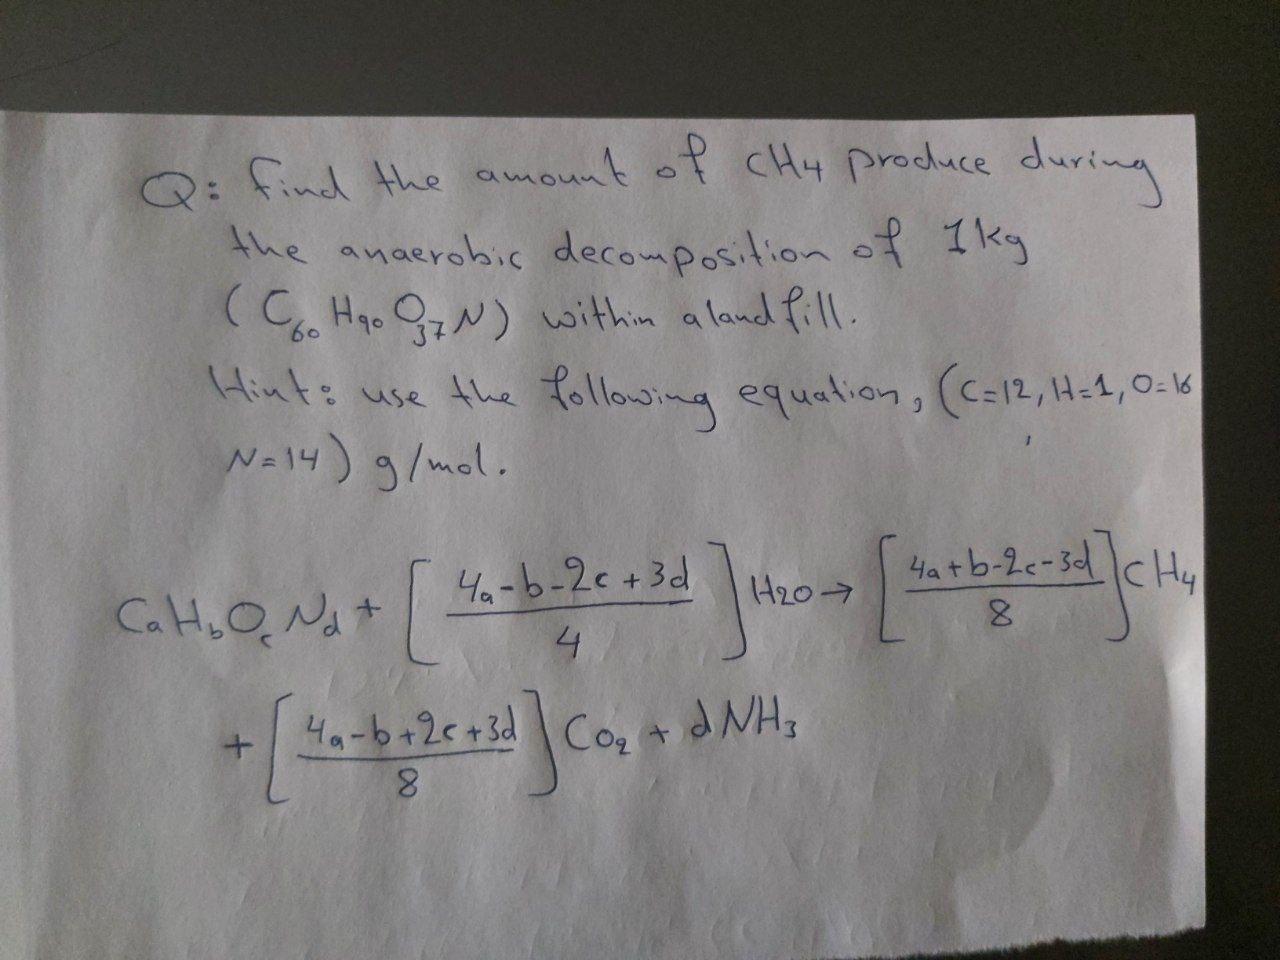 Q: find the amount of CH4 produce during
the anaerobic decomposition of 1kg
(C60 H90 O37 N) within a landfill.
Hint: use the following equation, (C=12, H=1, O=16
N=14) g/mol.
CaHbOcNd + [(4a-b-2c+3d)/4] H2O → [(4a+b-2c-3d)/8] CH4
+ [(4a-b+2c+3d)/8] CO2 + dNH3